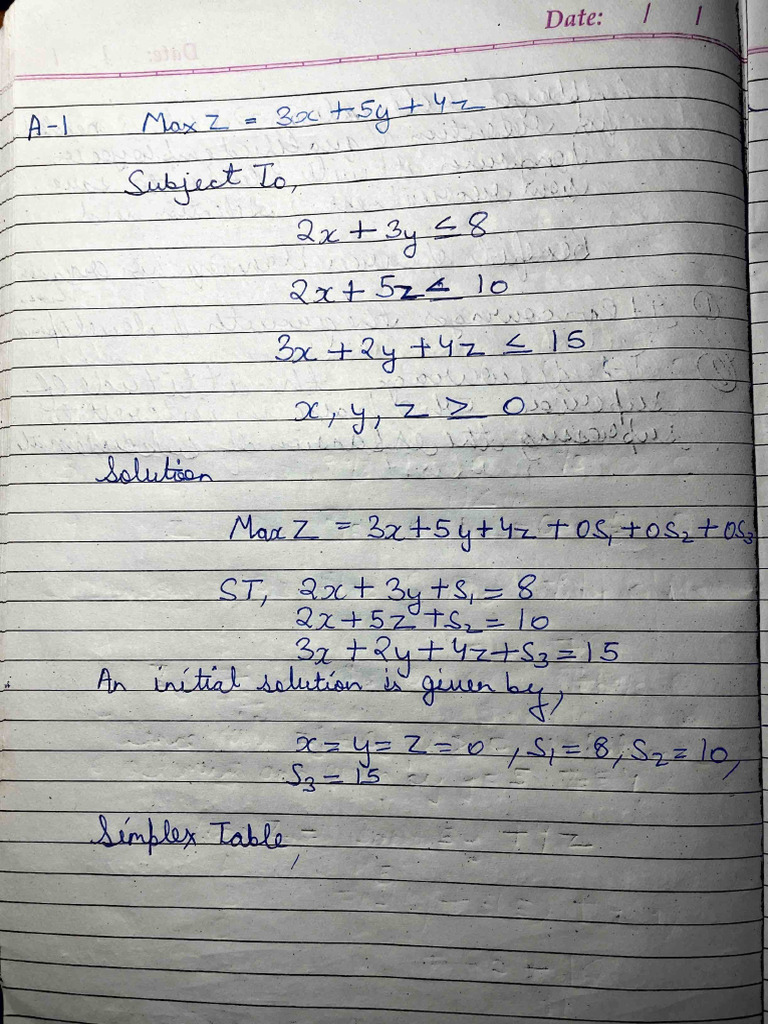 Date: / /
A-1 Max Z = 3x + 5y + 4z
Subject To,
2x + 3y ≤ 8
2x + 5z ≤ 10
3x + 2y + 4z ≤ 15
x, y, z ≥ 0
Solution
Max Z = 3x + 5y + 4z + 0S₁ + 0S₂ + 0S₃
ST, 2x + 3y + S₁ = 8
2x + 5z + S₂ = 10
3x + 2y + 4z + S₃ = 15
An initial solution is given by,
x = y = z = 0, S₁ = 8, S₂ = 10,
S₃ = 15
Simplex Table,